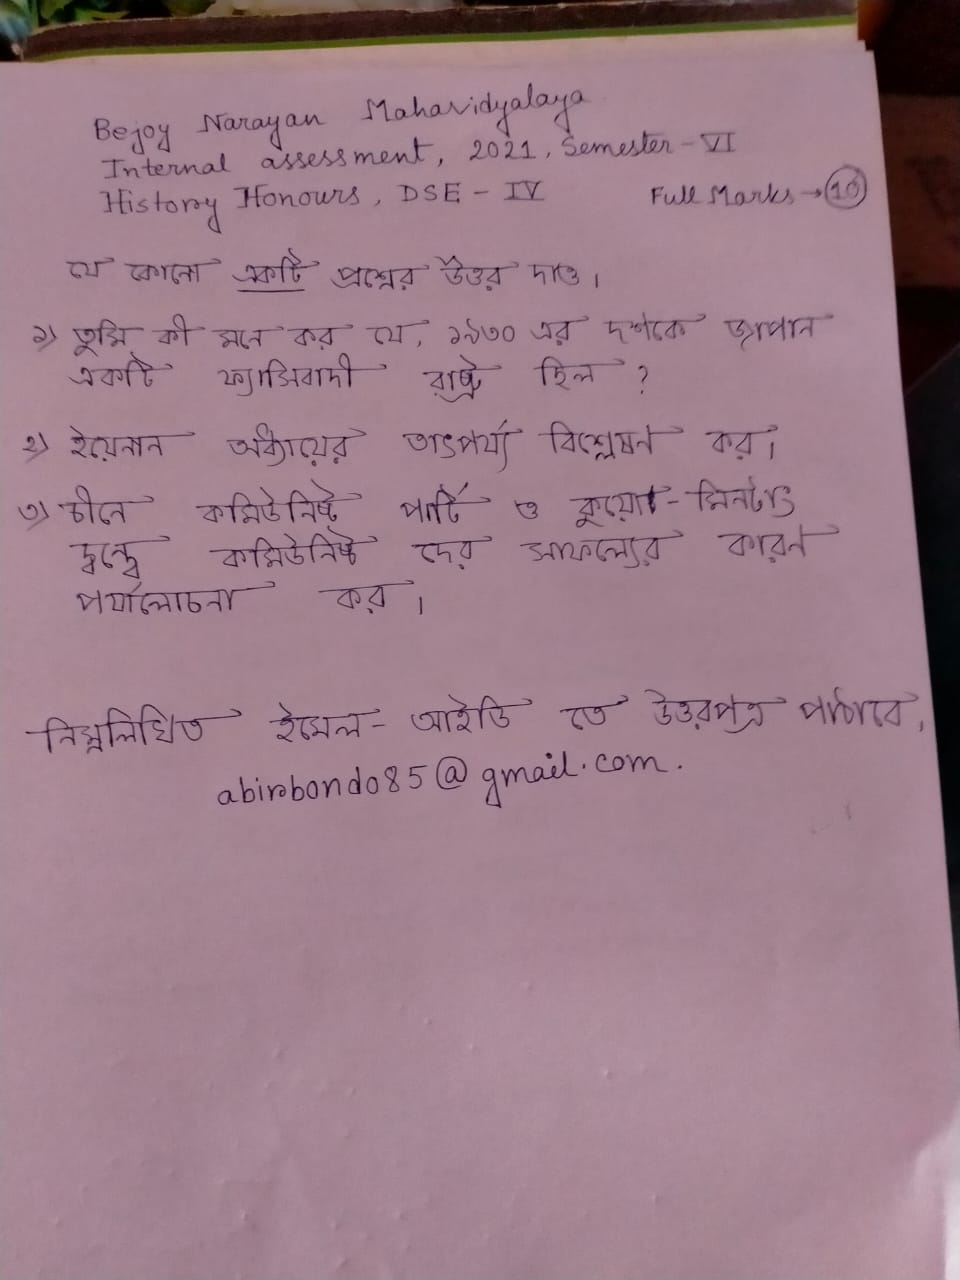 Bejoy Narayan Mahavidyalaya
Internal assessment, 2021, Semester - VI
History Honours, DSE - IV Full Marks → 10
যে কোনো একটি প্রশ্নের উত্তর দাও।
১) তুমি কী মনে কর যে, ১৯৩০ এর দশকে জাপান
একটি ফ্যাসিবাদী রাষ্ট্র ছিল ?
২) ইয়েনান অধ্যায়ের তাৎপর্য্য বিশ্লেষণ কর।
৩) চীনে কমিউনিষ্ট পার্টি ও কুয়ো-মিনটাং
দ্বন্দ্বে কমিউনিষ্ট দের সাফল্যের কারণ
পর্যালোচনা কর।
নিম্নলিখিত ইমেল-আইডি তে উত্তরপত্র পাঠাবে,
abirbondo85@gmail.com.